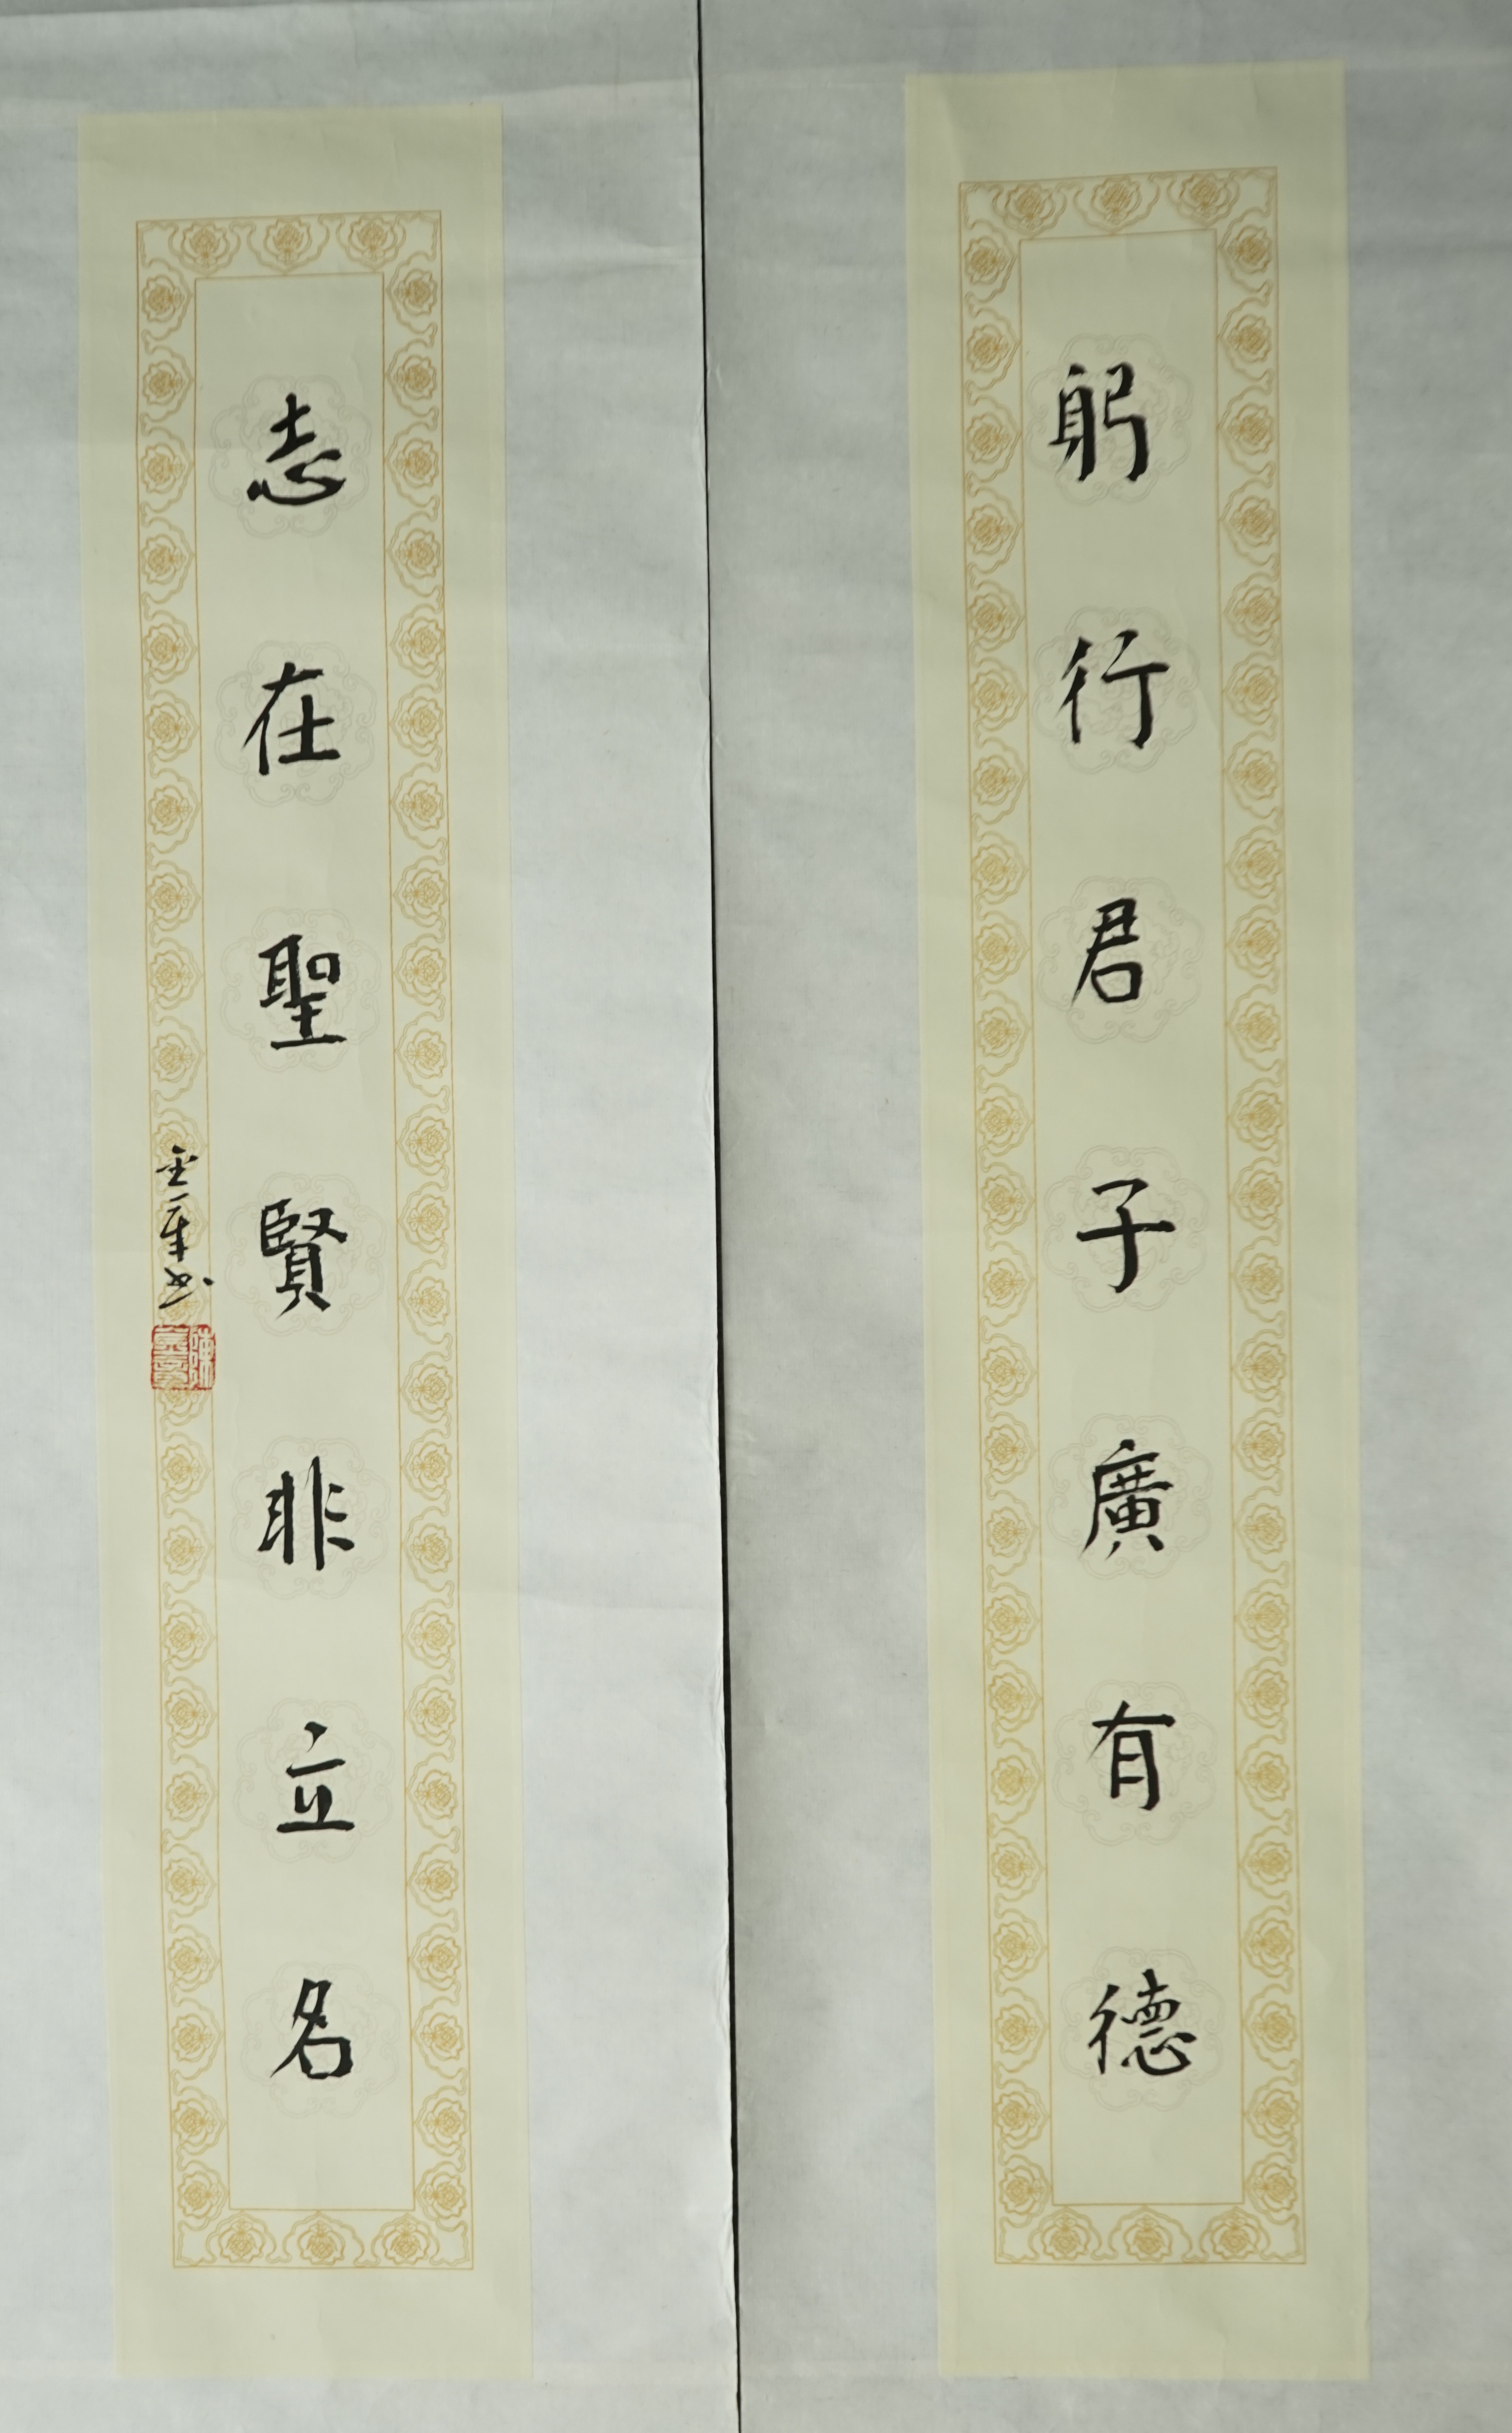 躬行君子廣有德
志在聖賢非立名
書